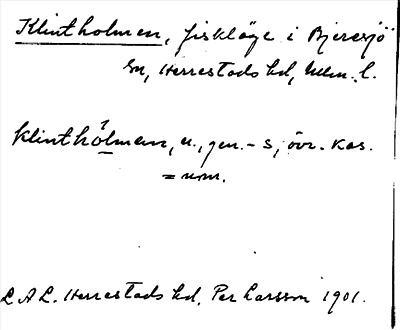 Klintholmen, fiskläge i Bjeresjö
sn, Herrestads hd, Malm. l.
klinthólmen, n., gen. - s, övr. kas.
= nom.
L A L. Herrestads hd. Per Larsson 1901.